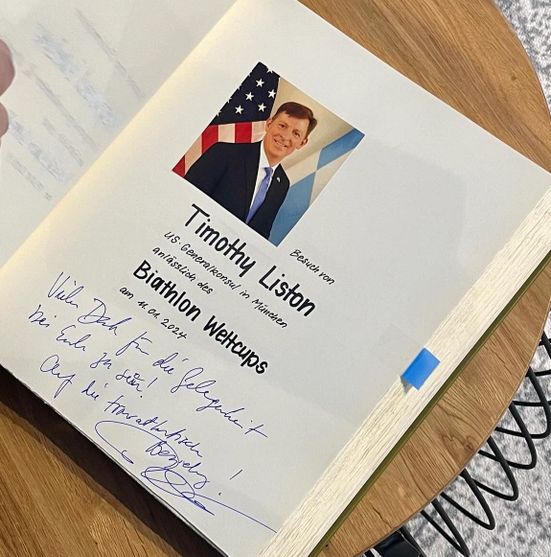 Besuch von
Timothy Liston
US. Generalkonsul in München
anlässlich des
Biathlon Weltcups
am 11.01.2024
Vielen Dank für die Gelegenheit
bei Euch zu sein!
Auf die transatlantisch
Beziehg!